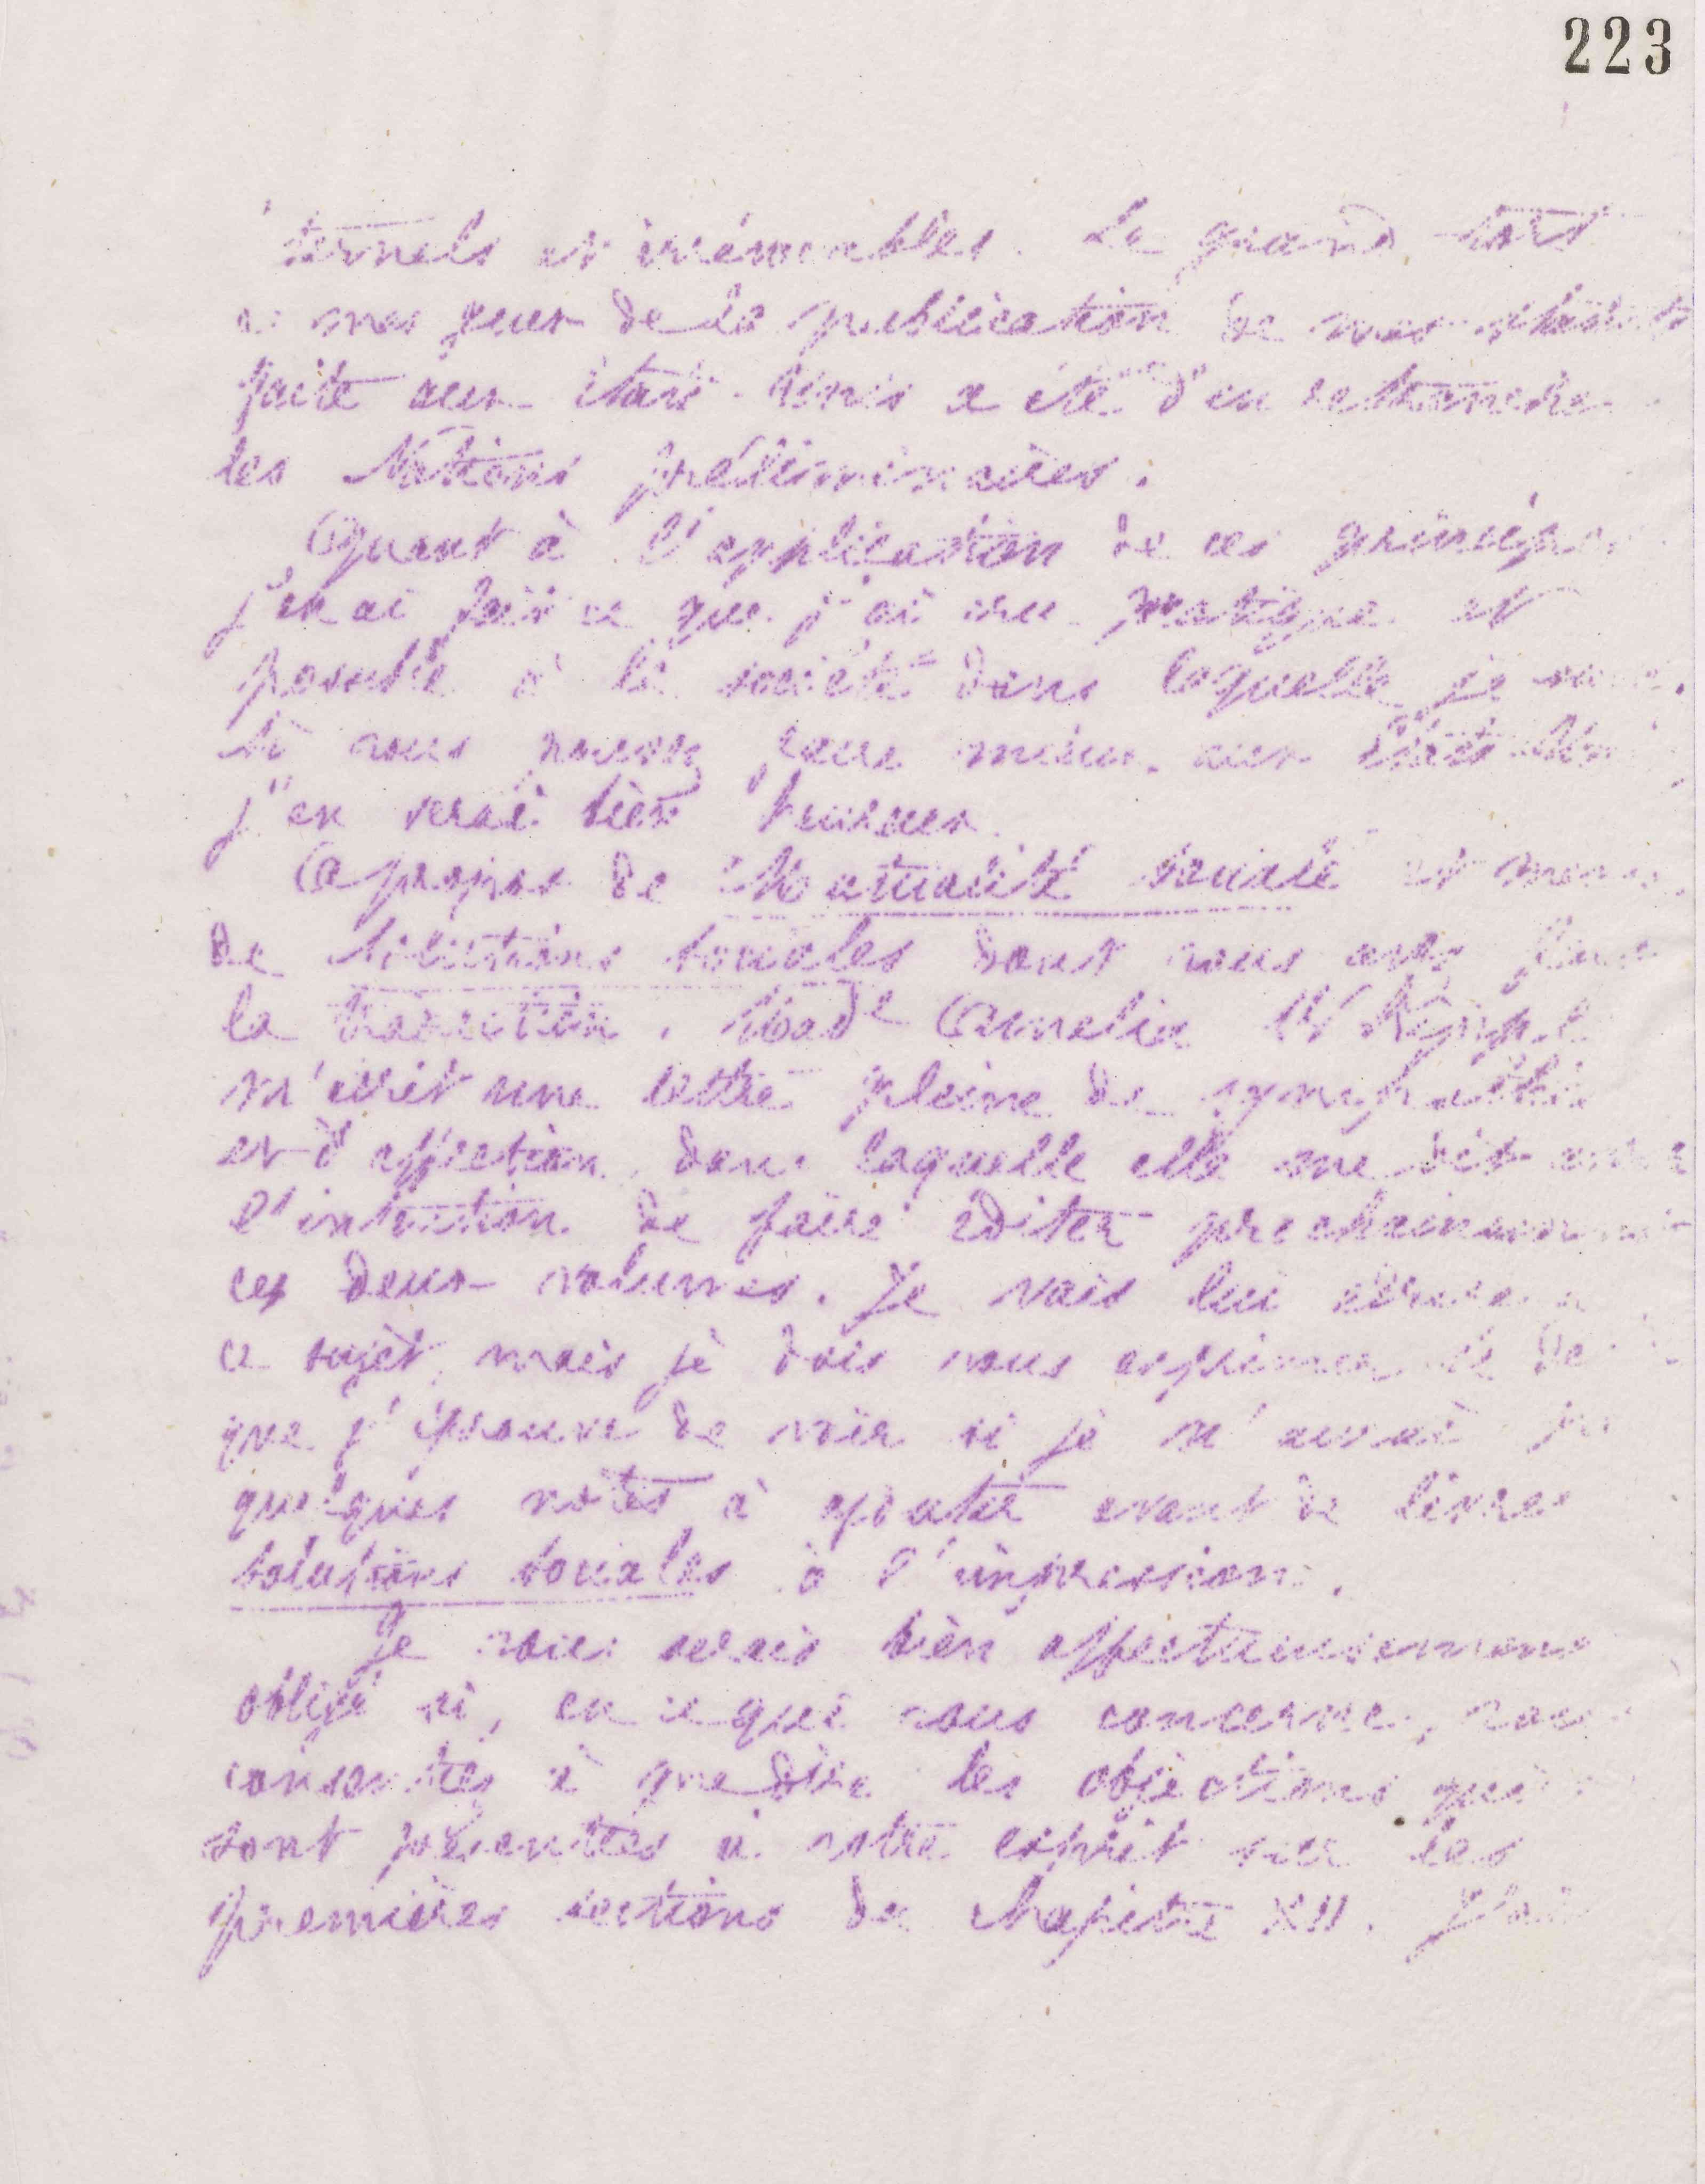 223
ternels et irrévocables. Le grand tort
à mes yeux de la publication de mes
faite aux états-Unis a été d'en retrancher
les Notions préliminaires.
Quant à l'application de ces principes
j'en ai fait ce que j'ai cru pratique et
possible à la société dans laquelle je
Si vous pouvez faire mieux aux états
j'en serai bien heureux.
A propos de Mutualité sociale et
de Solutions sociales dont vous avez
la traduction, Made Amelia
m'écrit une lettre pleine de sympathie
et d'affection dans laquelle elle me dit
l'intention de faire éditer prochainement
ces deux volumes. Je vais lui écrire à
ce sujet, mais je dois vous exprimer le
que j'éprouve de voir si je n'aurai
quelques notes à ajouter avant de livrer
Solutions sociales à l'impression.
Je vous serais bien affectueusement
obligé si, en ce qui vous concerne, vous
consentez à me dire les objections qui
sont présentées à votre esprit sur les
premières sections du chapitre XII.